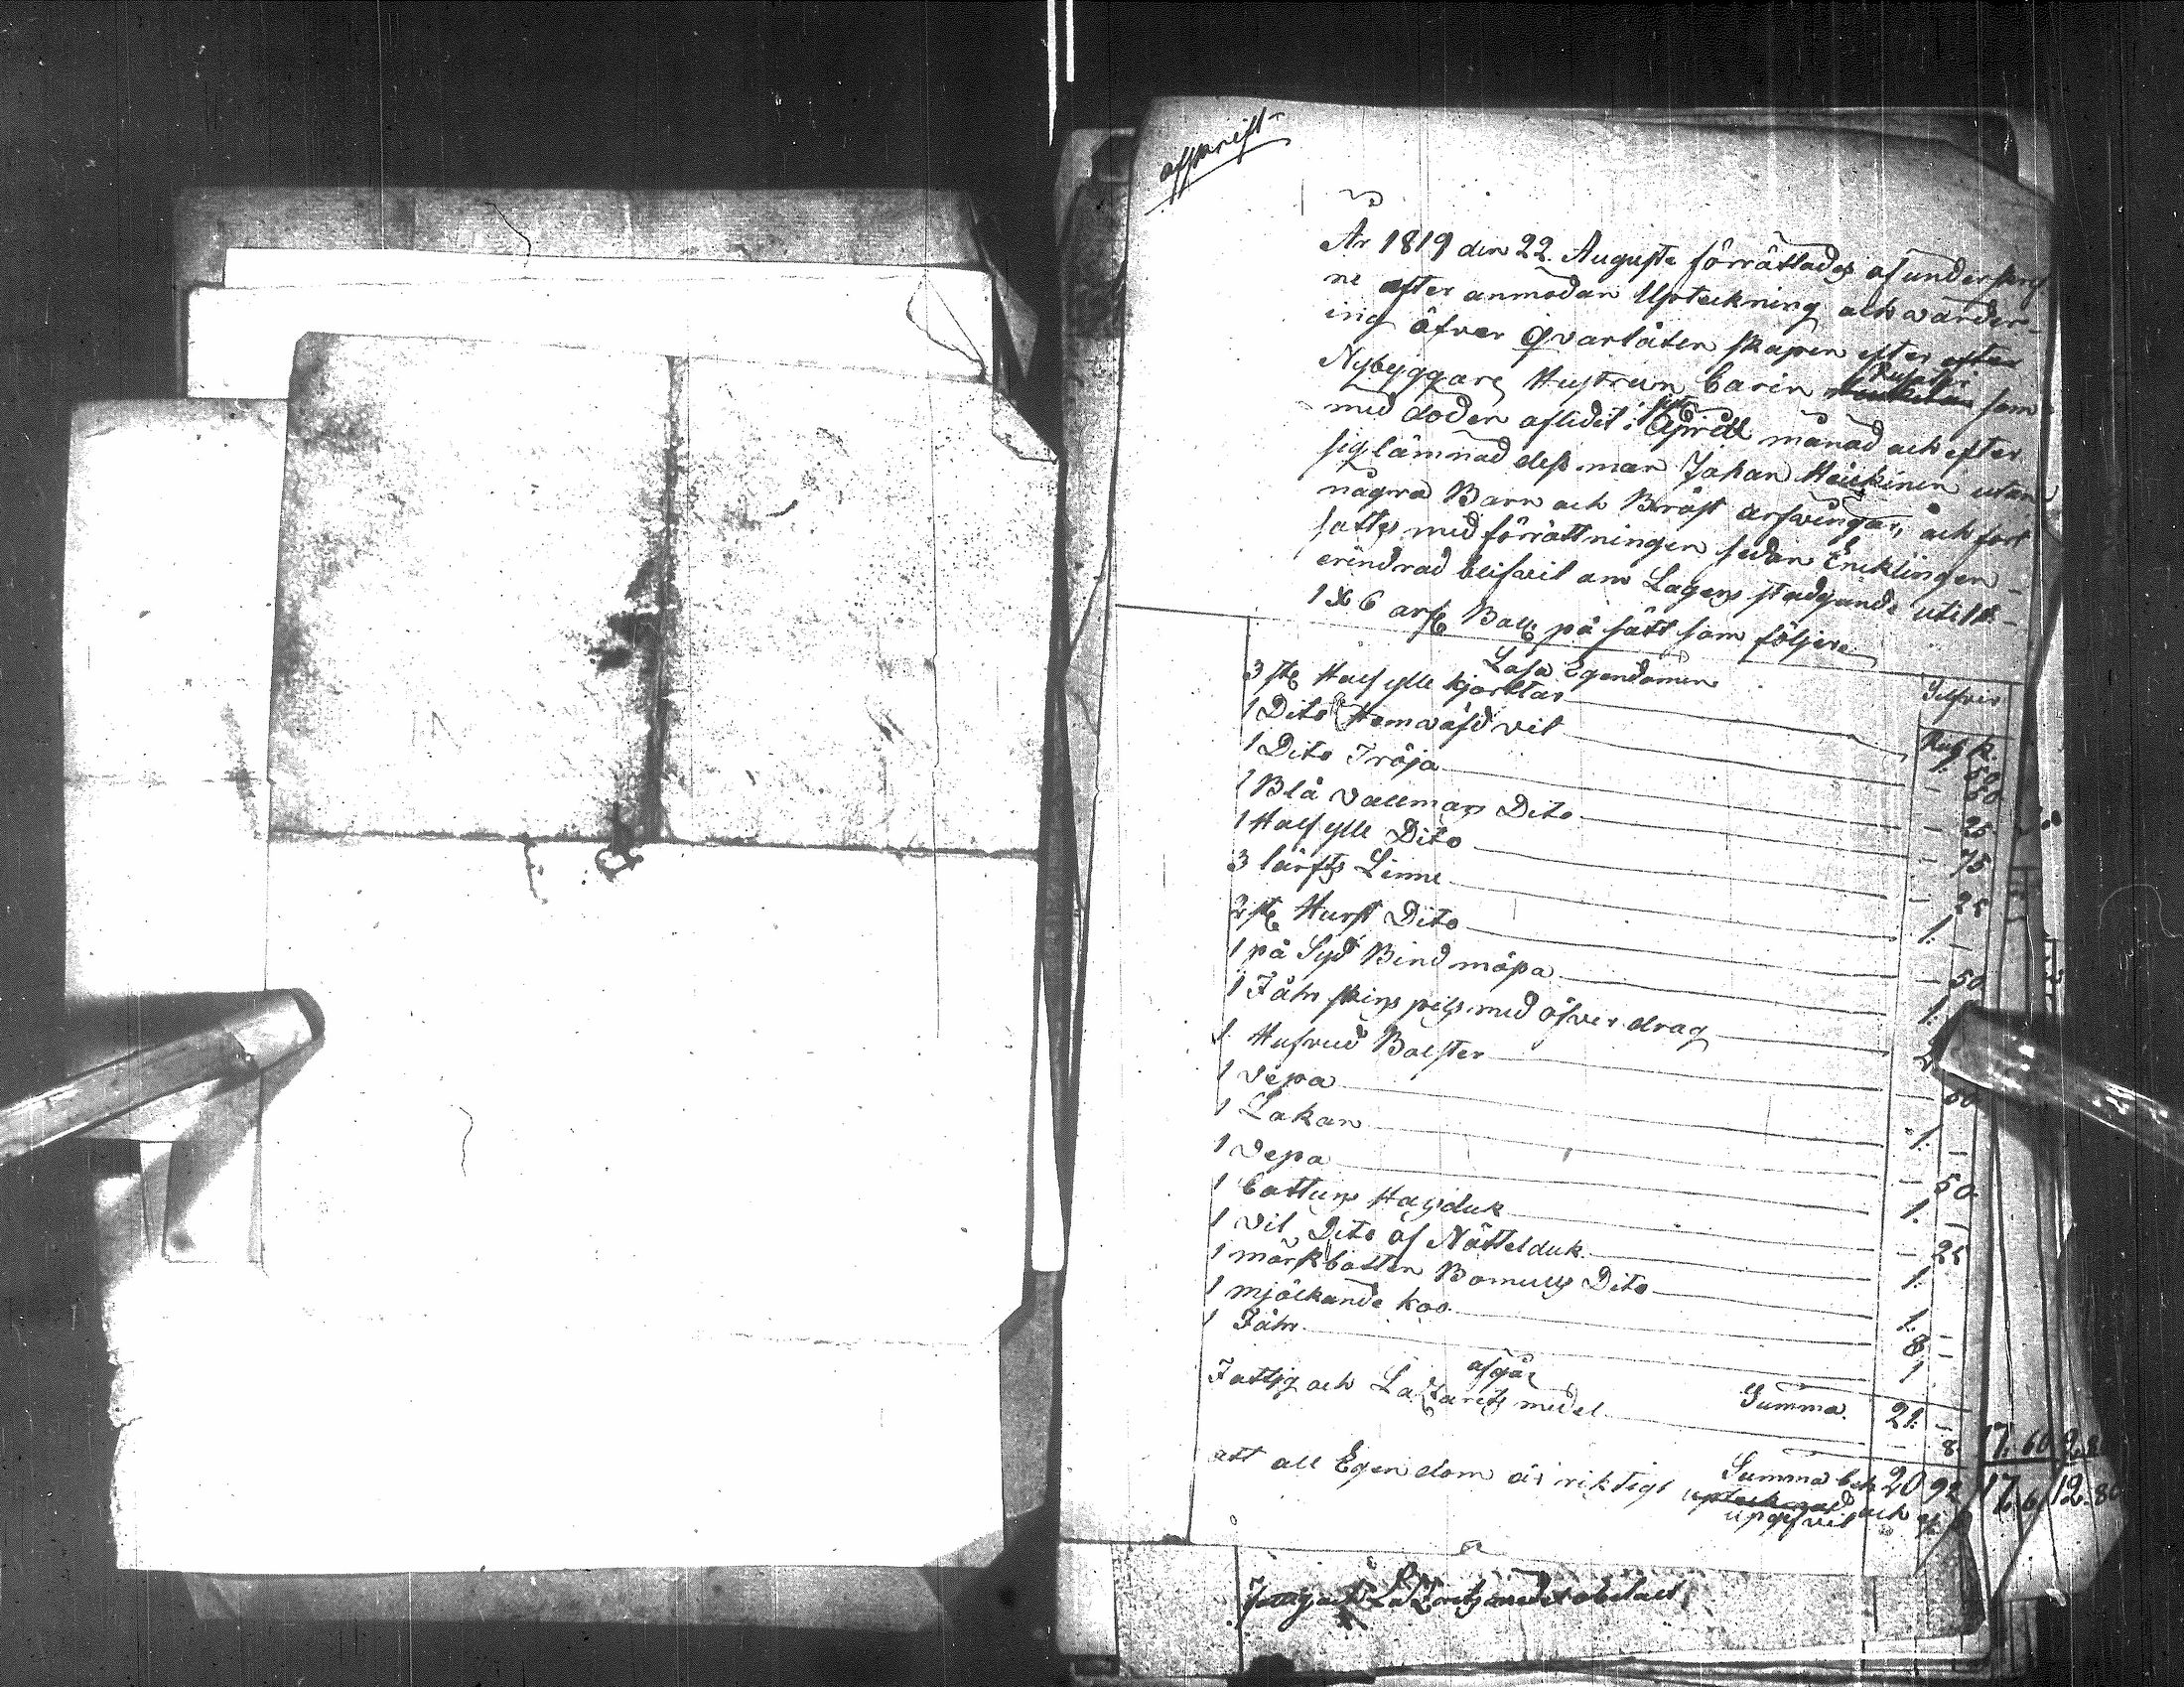 afskrift
År 1819 den 22. Augusti förrättades af underskref
ne efter anmodan Upteckning och värder-
ing öfver Qvarlåtenskapen efter
Nybyggare Hustrun Carin som
med döden aflidit i Aprill månad och efter
sig lämnad dess man Johan Heickinen utan
några Barn och Bröst arfvingar, och fort
sattes med förrättningen sedan Encklingen
erindrad blifvit om Lagens stadgande uti 1 §
1 & 6 arfs Balk på sätt som följer
Lösa Egendomen
Silfver
Rub k.
3 st Half ylle kjortlar 1. 50
1 Dito Hemväfd vit - 50
1 Dito Tröja - 25
1 Blå vallmars Dito - 75
1 Half ylle Dito - 25
3 lärfts Linne 1. -
2 st Hurst Dito - 50
1 på Syd Bindmöpa 1.
1 Fåhr skins pels med öfver drag
1 Hufvud Bolster 50
1 vepa 1. -
1 Lakan - 50
1 vepa 1. -
1 Cattuns Halsduk - 25
1 vit Dito af Nättelduk 1.
1 mörkbotten Bomulls Dito 1. -
1 mjölkande koo 8 -
1 Fåhr 1
Summa 21. -
afgår
Fattig och Lazarets medel - 8
17. 60
Summa beh 20 92
att all Egendom är riktigt och
upgifvit